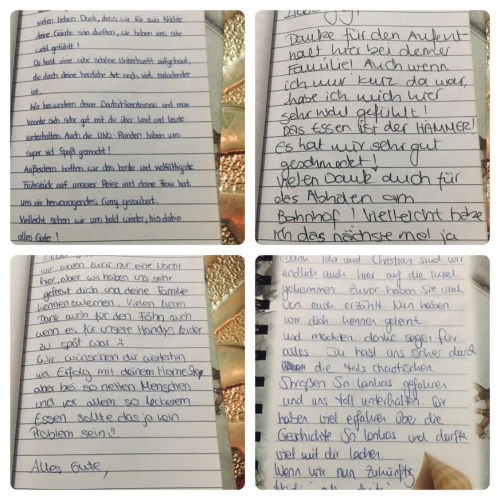 vielen lieben Dank, dass wir für zwei Nächte
deine Gäste sein durften, wir haben uns sehr
wohl gefühlt!
Du hast eine sehr schöne Unterkunft aufgebaut,
die durch deine herzliche Art noch viel einladender
ist.
Wir bewundern deine Deutschkenntnisse und man
konnte sich sehr gut mit dir über Land und Leute
unterhalten. Auch die UNO Runden haben uns
super viel Spaß gemacht!
Außerdem hatten wir das beste und vielfältigste
Frühstück auf unserer Reise und deine Frau hat
uns ein hervorragendes Curry gezaubert.
Vielleicht sehen wir uns bald wieder, bis dahin
alles Gute!
Danke für den Aufent-
halt hier bei deiner
Familie! Auch wenn
ich nur kurz da war,
habe ich mich hier
sehr wohl gefühlt!
Das Essen ist der HAMMER!
Es hat mir sehr gut
geschmeckt!
Vielen Dank auch für
das Abholen am
Bahnhof! Vielleicht habe
ich das nächste mal ja
wir waren zwar nur eine Nacht
hier, aber wir haben uns sehr
gefreut dich und deine Familie
kennenzulernen. Vielen lieben
Dank auch für den Föhn auch
wenn es für unsere Handys leider
zu spät war :)
Wir wünschen dir weiterhin
viel Erfolg mit deinem Home Stay
aber bei so netten Menschen
und vor allem so leckerem
Essen sollte das ja kein
Problem sein!
Alles Gute,
und Christian sind wir
endlich auch hier auf die Insel
gekommen. Zuvor haben sie viel
von euch erzählt. Nun haben
wir dich kennen gelernt
und möchten danke sagen für
alles. Du hast uns sicher durch
die teils chaotischen
Straßen Sri Lankas gefahren
und uns toll unterhalten. Wir
haben viel erfahren über die
Geschichte Sri Lankas und durften
viel mit dir lachen.
Wenn wir nun zukünftig